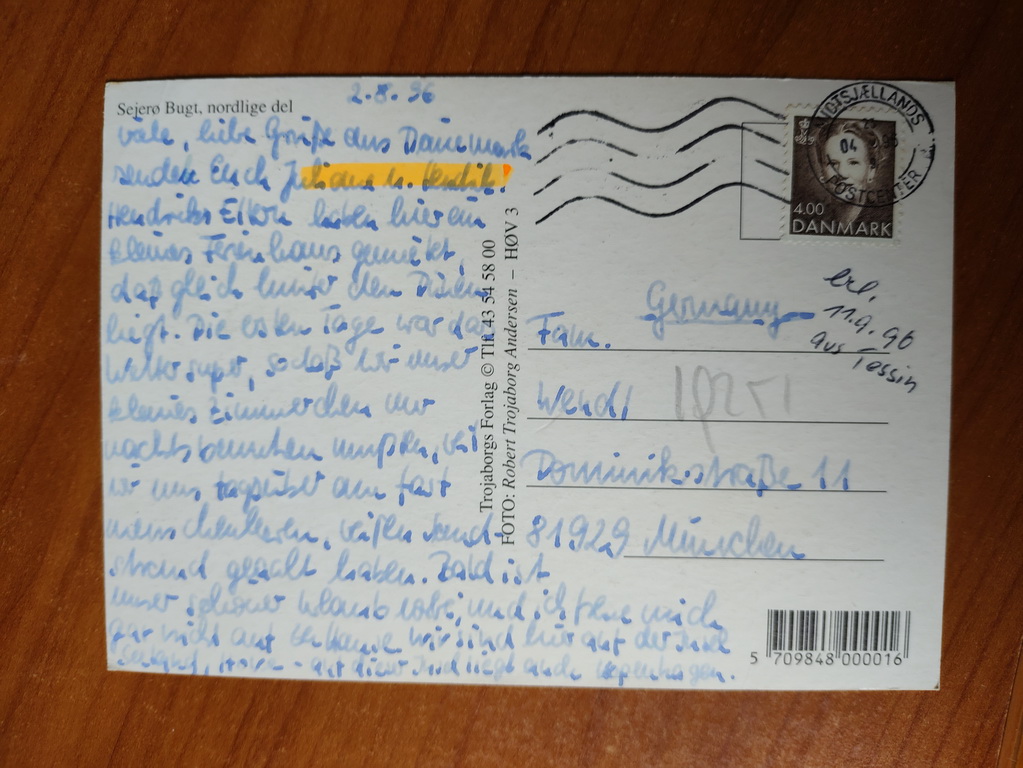 Sejerø Bugt, nordlige del
2.8.96
viele, liebe Grüße aus Dänemark
senden Euch Juliane u. Hendrik.
Hendriks Eltern haben hier ein
kleines Ferienhaus gemietet,
daß gleich hinter den Dünen
liegt. Die ersten Tage war das
Wetter super, sodaß wir unser
kleines Zimmerchen nur
nachts benutzen mußten, weil
wir uns tagsüber am fast
menschenleeren, weißen Sand-
strand geaalt haben. Bald ist
unser schöner Urlaub vorbei, und ich freue mich
gar nicht auf zu Hause. Wir sind hier auf der Insel
Seeland, - auf dieser Insel liegt auch Kopenhagen.
Trojaborgs Forlag © Tlf. 43 54 58 00
FOTO: Robert Trojaborg Andersen – HØV 3
POSTCENTER
04
4.00
DANMARK
Germany
erl.
11.9.96
aus Tessin
Fam.
Wendt
Dominikstraße 11
81929 München
5 709848 000016